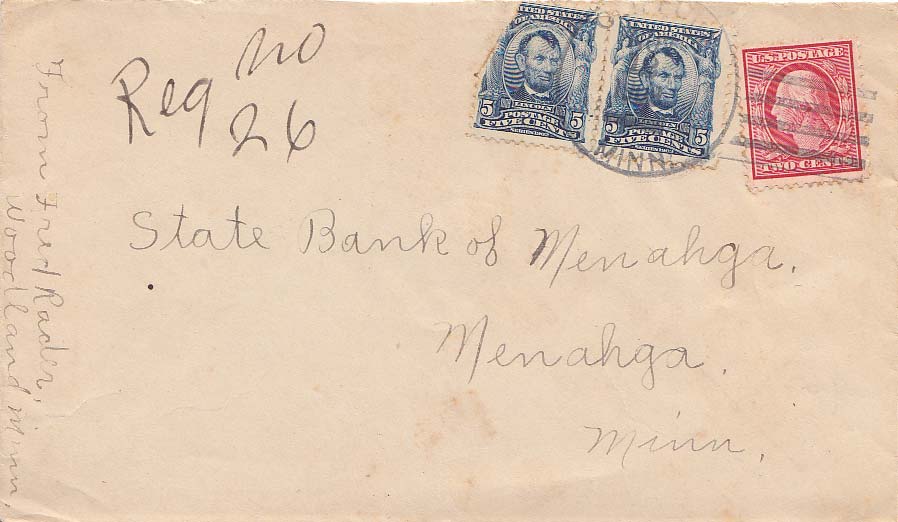 Reg no
26
UNITED STATES
OF AMERICA
LINCOLN
5 POSTAGE 5
FIVE CENTS
SERIES 1902
UNITED STATES
OF AMERICA
LINCOLN
5 POSTAGE 5
FIVE CENTS
SERIES 1902
MINN.
U.S. POSTAGE
TWO CENTS
State Bank of Menahga.
Menahga.
Minn.
From Fred Rader,
Woodland Minn